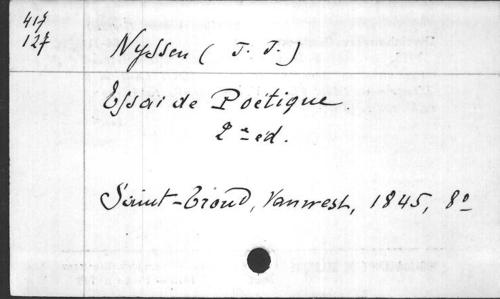 415
127
Nyssen ( J. J. )
Essai de Poétique.
2e éd.
Saint-Trond, Vanwest, 1845, 8o